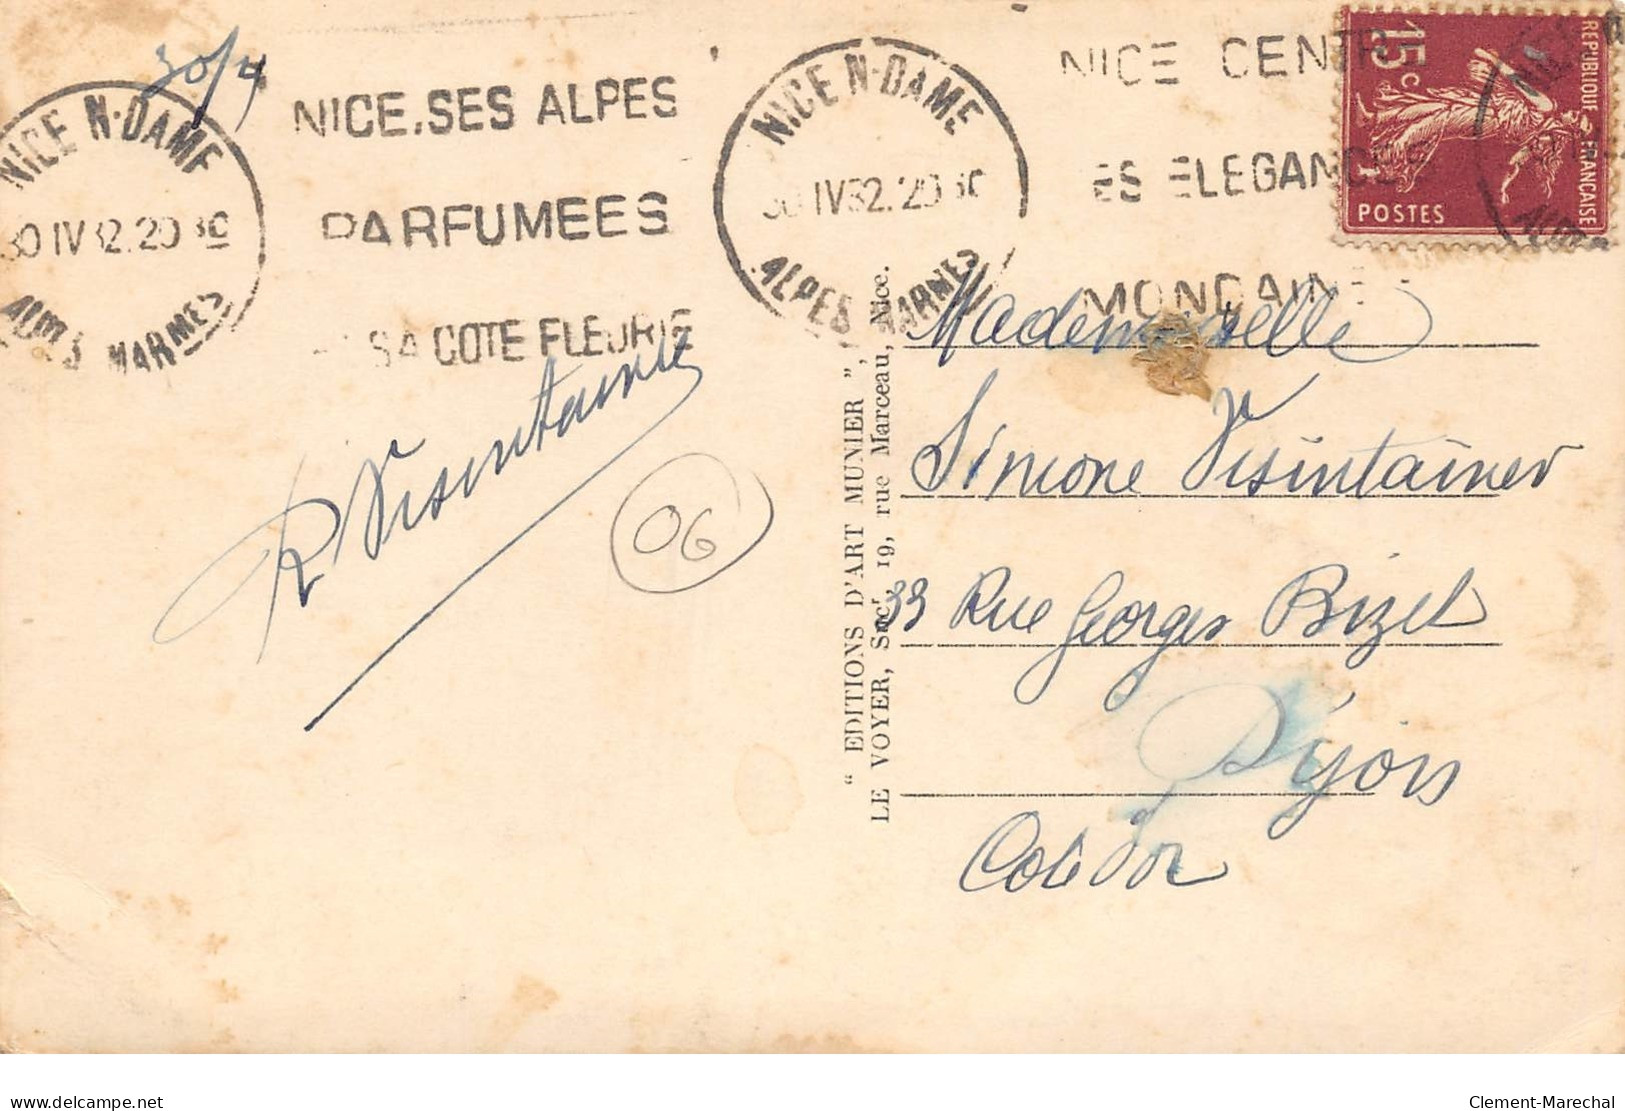 30/4
NICE N-DAME
30 IV 32. 20 30
ALPES MARMES
NICE.SES ALPES
PARFUMEES
SA COTE FLEURIE
NICE N-DAME
30 IV 32. 20 30
ALPES MARMES
NICE CENTR
ES ELEGANCES
MONDAINES
REPUBLIQUE FRANÇAISE
15c
POSTES
R Visintainer
06
" EDITIONS D'ART MUNIER ",
LE VOYER, Sucr, 19, rue Marceau, Nice.
Mademoiselle
Simone Visintainer
33 Rue Georges Bizet
Dijon
Cote d'or
delcampe.net
Clement-Marechal